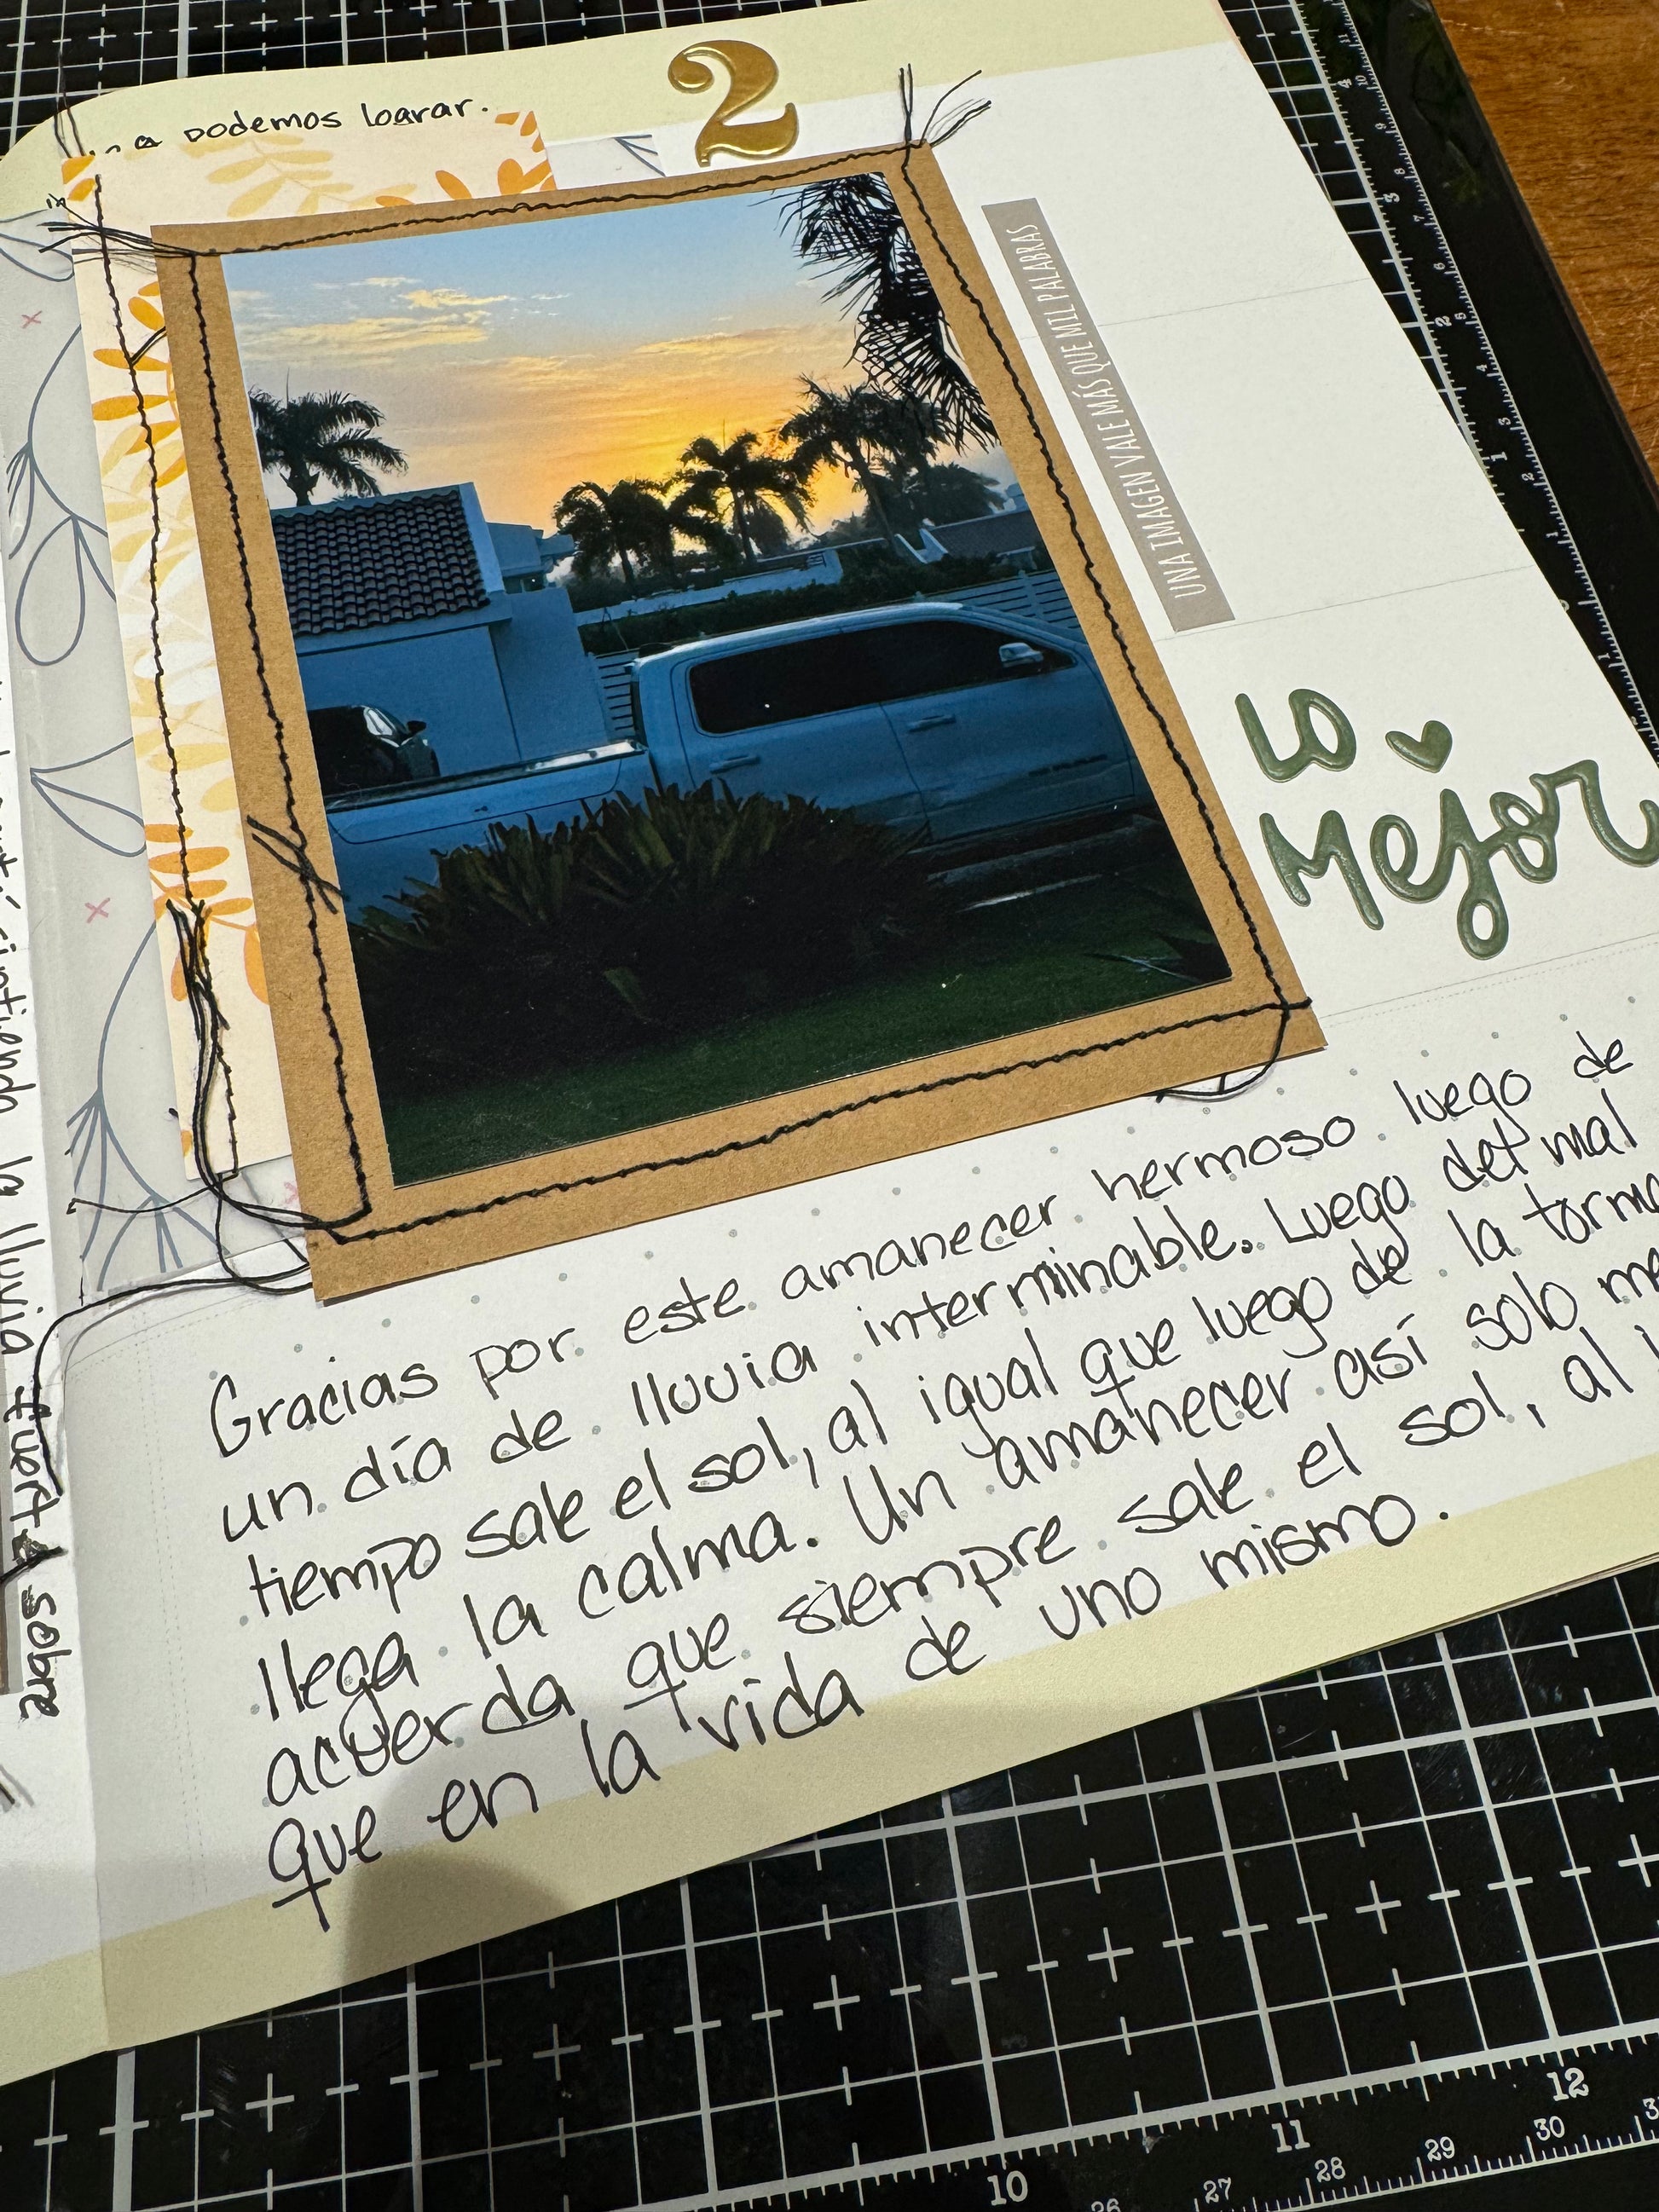 podemos lograr.
2
UNA IMAGEN VALE MÁS QUE MIL PALABRAS
LO
Mejor
Gracias por este amanecer hermoso luego de
un día de lluvia interminable. Luego del mal
tiempo sale el sol, al igual que luego de la
llega la calma. Un amanecer así solo
acuerda que siempre sale el sol, al
que en la vida de uno mismo.
sintiendo la lluvia fuerte sobre
12
11
10
30
29
28
27
26